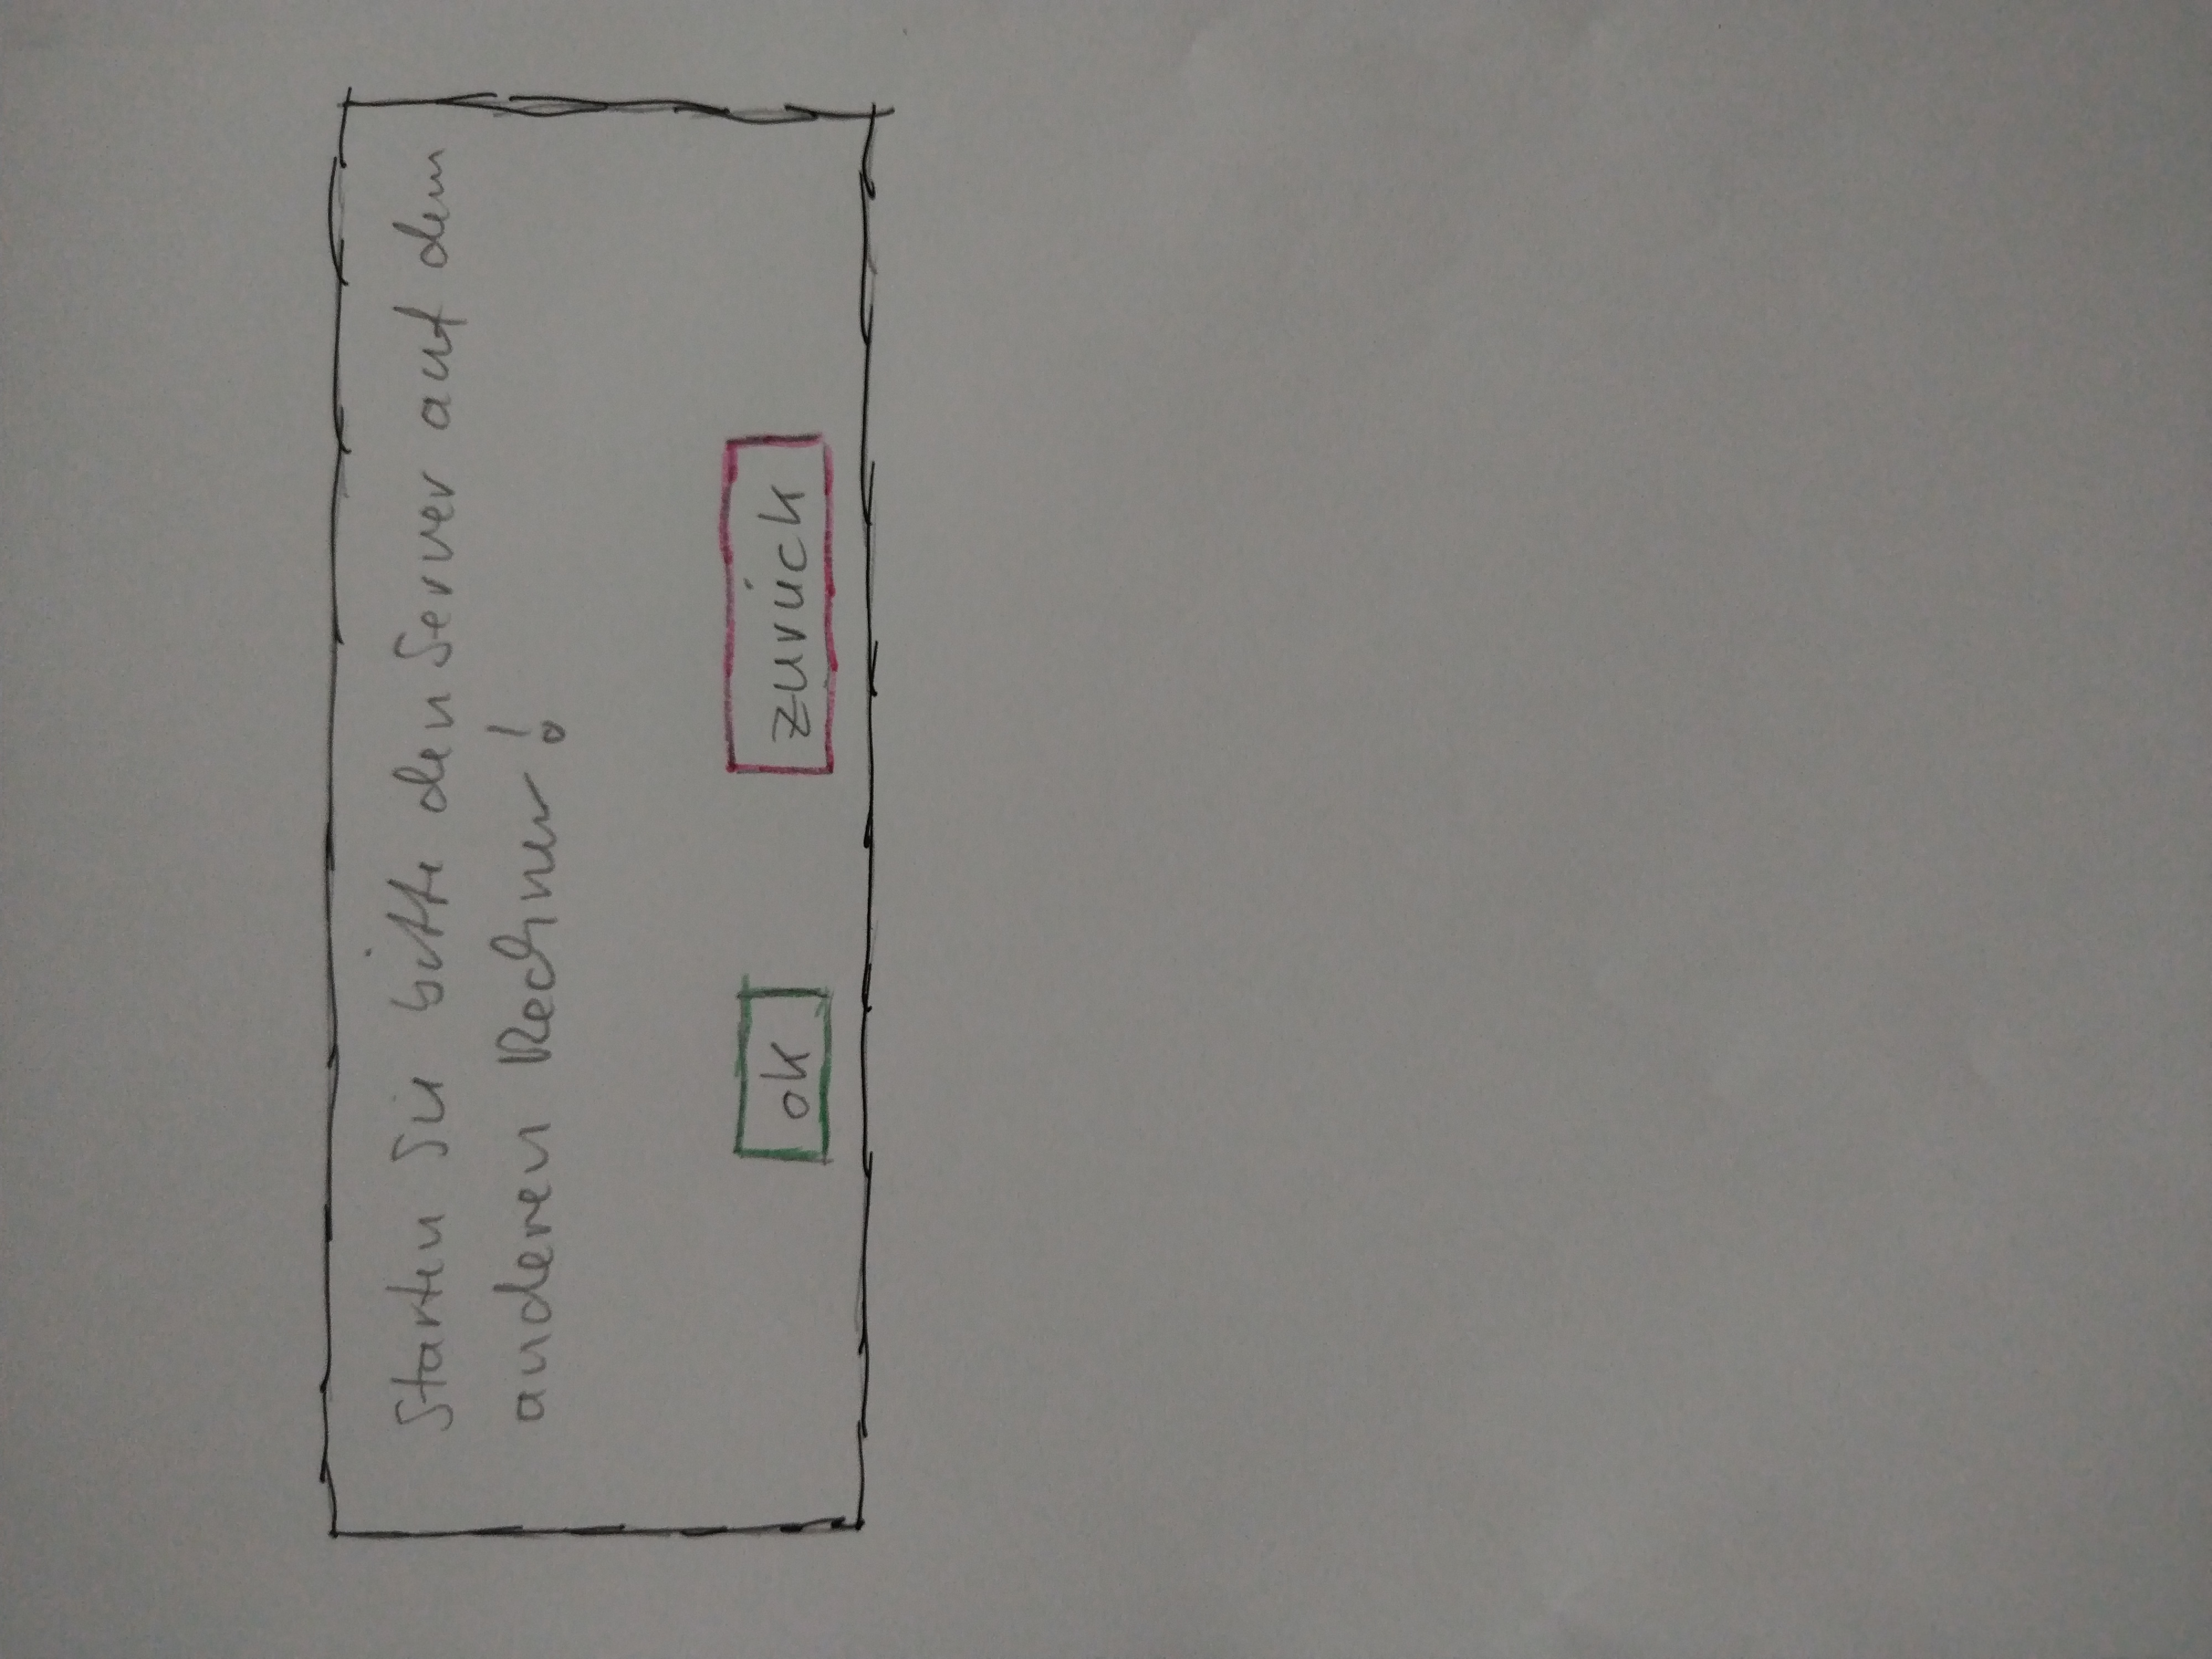 Starten Sie bitte den Server auf dem
anderen Rechner!
ok zurück